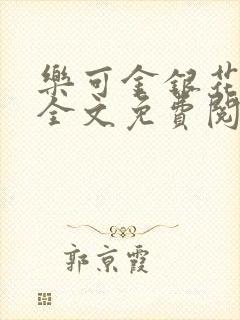 樂可金銀花
全文免費閱
郭京霞